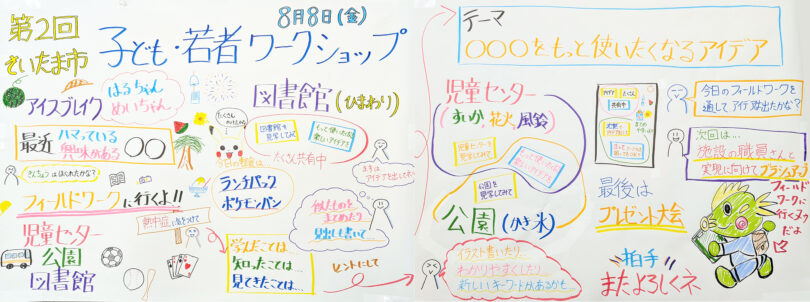 第2回
さいたま市
8月8日(金)
子ども・若者ワークショップ
アイスブレイク
はるちゃん
めいちゃん
最近
ハマっている
興味がある
○○
きんちょうはほぐれたかな？
フィールドワークに行くよ!!
熱中症に気をつけて
児童センター
公園
図書館
図書館(ひまわり)
図書館を
見学してみて
もっと使いたくなる
楽しいアイデア
たくさん共有中
ランチパック
ポケモンパン
まずは
アイデアを出して
似たものを
まとめたり
見出し書いて
学んだことは…
知ったことは…
見てきたことは…
ヒントにして
テーマ
○○○をもっと使いたくなるアイデア
児童センター
(すいか,花火,風鈴)
児童センターを
見学してみて
公園を
見学してみて
公園(かき氷)
イラスト書いたり、
わかりやすくしたり
新しいキーワードがあるかも
共有中
今日のフィールドワークを
通してアイデア出たかな？
次回は…
施設の職員さんと
実現に向けてブラシアップ
最後は
プレゼント大会
拍手
またよろしくネ
フィールド
ワークに
行くヌゥ
だよ